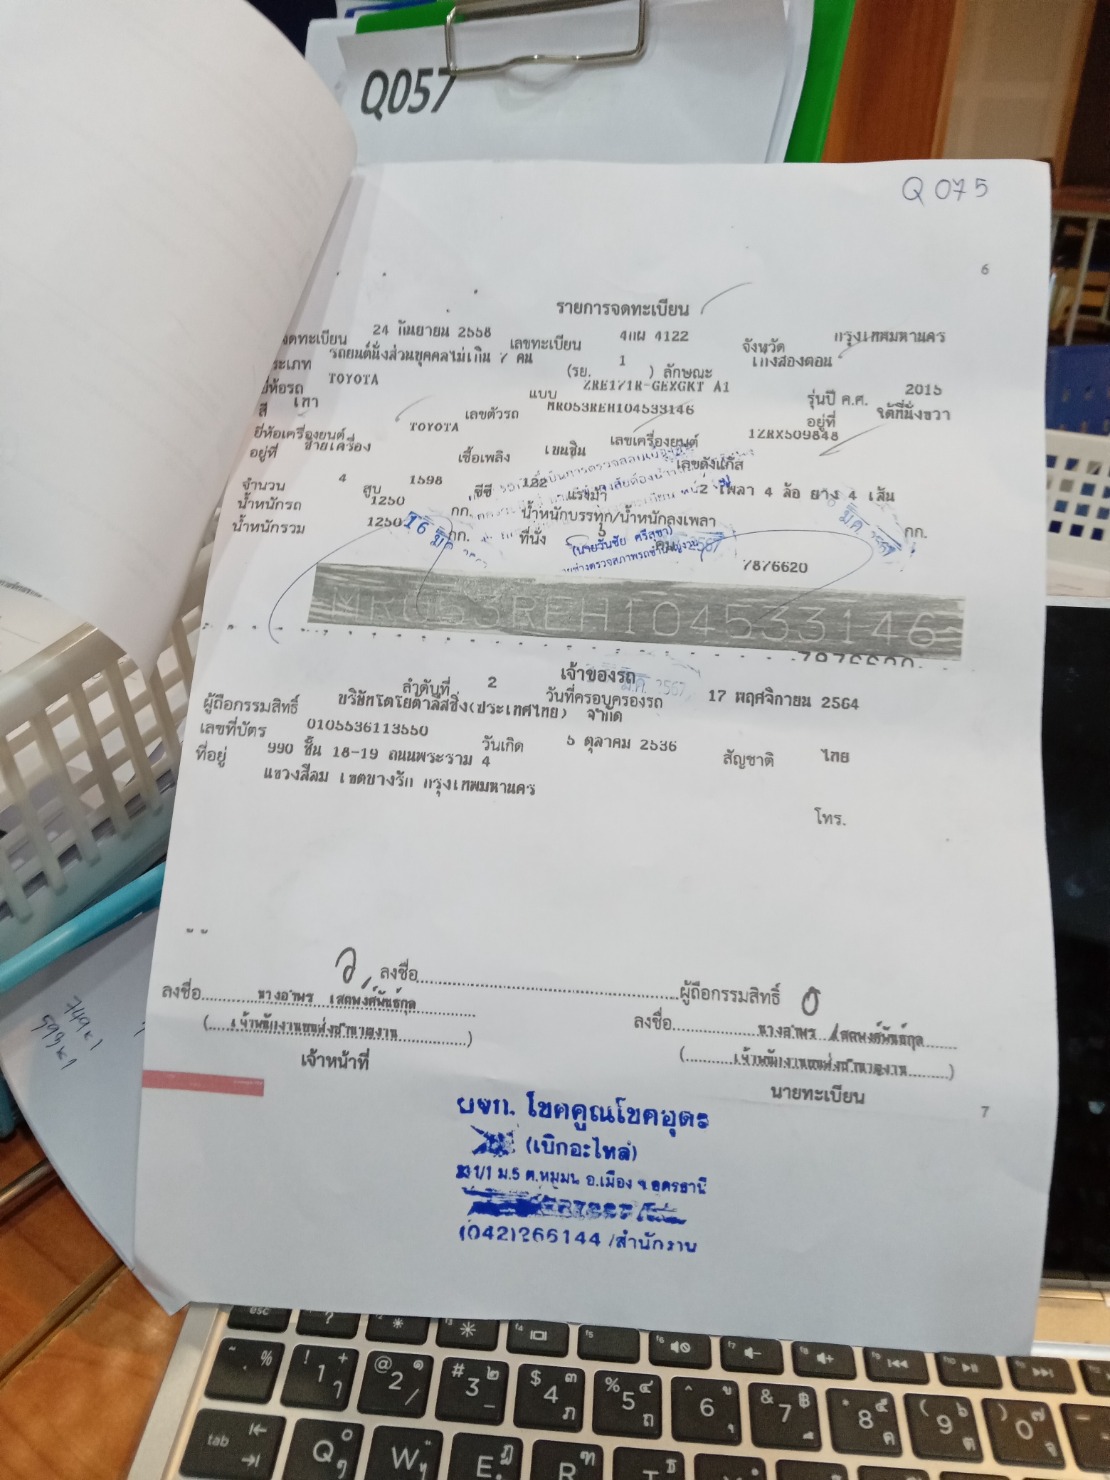 Q057
Q 075
6
รายการจดทะเบียน
จดทะเบียน 24 กันยายน 2558 เลขทะเบียน 4กผ 4122 จังหวัด กรุงเทพมหานคร
ประเภท รถยนต์นั่งส่วนบุคคลไม่เกิน 7 คน (รย. 1 ) ลักษณะ เก๋งสองตอน
ยี่ห้อรถ TOYOTA แบบ ZRE171R-GEXGKT A1 รุ่นปี ค.ศ. 2015
สี เทา เลขตัวรถ MR053REH104533146 อยู่ที่ ใต้ที่นั่งขวา
ยี่ห้อเครื่องยนต์ TOYOTA เลขเครื่องยนต์ 1ZRX509848
อยู่ที่ ซ้ายเครื่อง เชื้อเพลิง เบนซิน เลขถังแก๊ส
จำนวน 4 สูบ 1598 ซีซี 122 แรงม้า 2 เพลา 4 ล้อ ยาง 4 เส้น
น้ำหนักรถ 1250 กก. น้ำหนักบรรทุก/น้ำหนักลงเพลา กก.
น้ำหนักรวม 1250 กก. ที่นั่ง คน
(นายวันชัย ศรีสุชา)
7876620
MR053REH104533146
7876620
เจ้าของรถ
ลำดับที่ 2 วันที่ครอบครองรถ 17 พฤศจิกายน 2564
ผู้ถือกรรมสิทธิ์ บริษัทโตโยต้าลีสซิ่ง(ประเทศไทย) จำกัด
เลขที่บัตร 0105536113550 วันเกิด 5 ตุลาคม 2536 สัญชาติ ไทย
ที่อยู่ 990 ชั้น 18-19 ถนนพระราม 4
แขวงสีลม เขตบางรัก กรุงเทพมหานคร
โทร.
ลงชื่อ ผู้ถือกรรมสิทธิ์
ลงชื่อ นางอำพร เสตพงศ์พันธ์กุล
(เจ้าพนักงานขนส่งชำนาญงาน)
เจ้าหน้าที่
ลงชื่อ นางอำพร เสตพงศ์พันธ์กุล
(เจ้าพนักงานขนส่งชำนาญงาน)
นายทะเบียน
7
ผจก. โชคคูณโชคอุดร
(เบิกอะไหล่)
ม.5 ต.หมูม่น อ.เมือง จ.อุดรธานี
(042)266144 /สำนักงาน
749x1
593x1
esc
tab
Q W E R
1 2 3 4 5 6 7 8 9 0